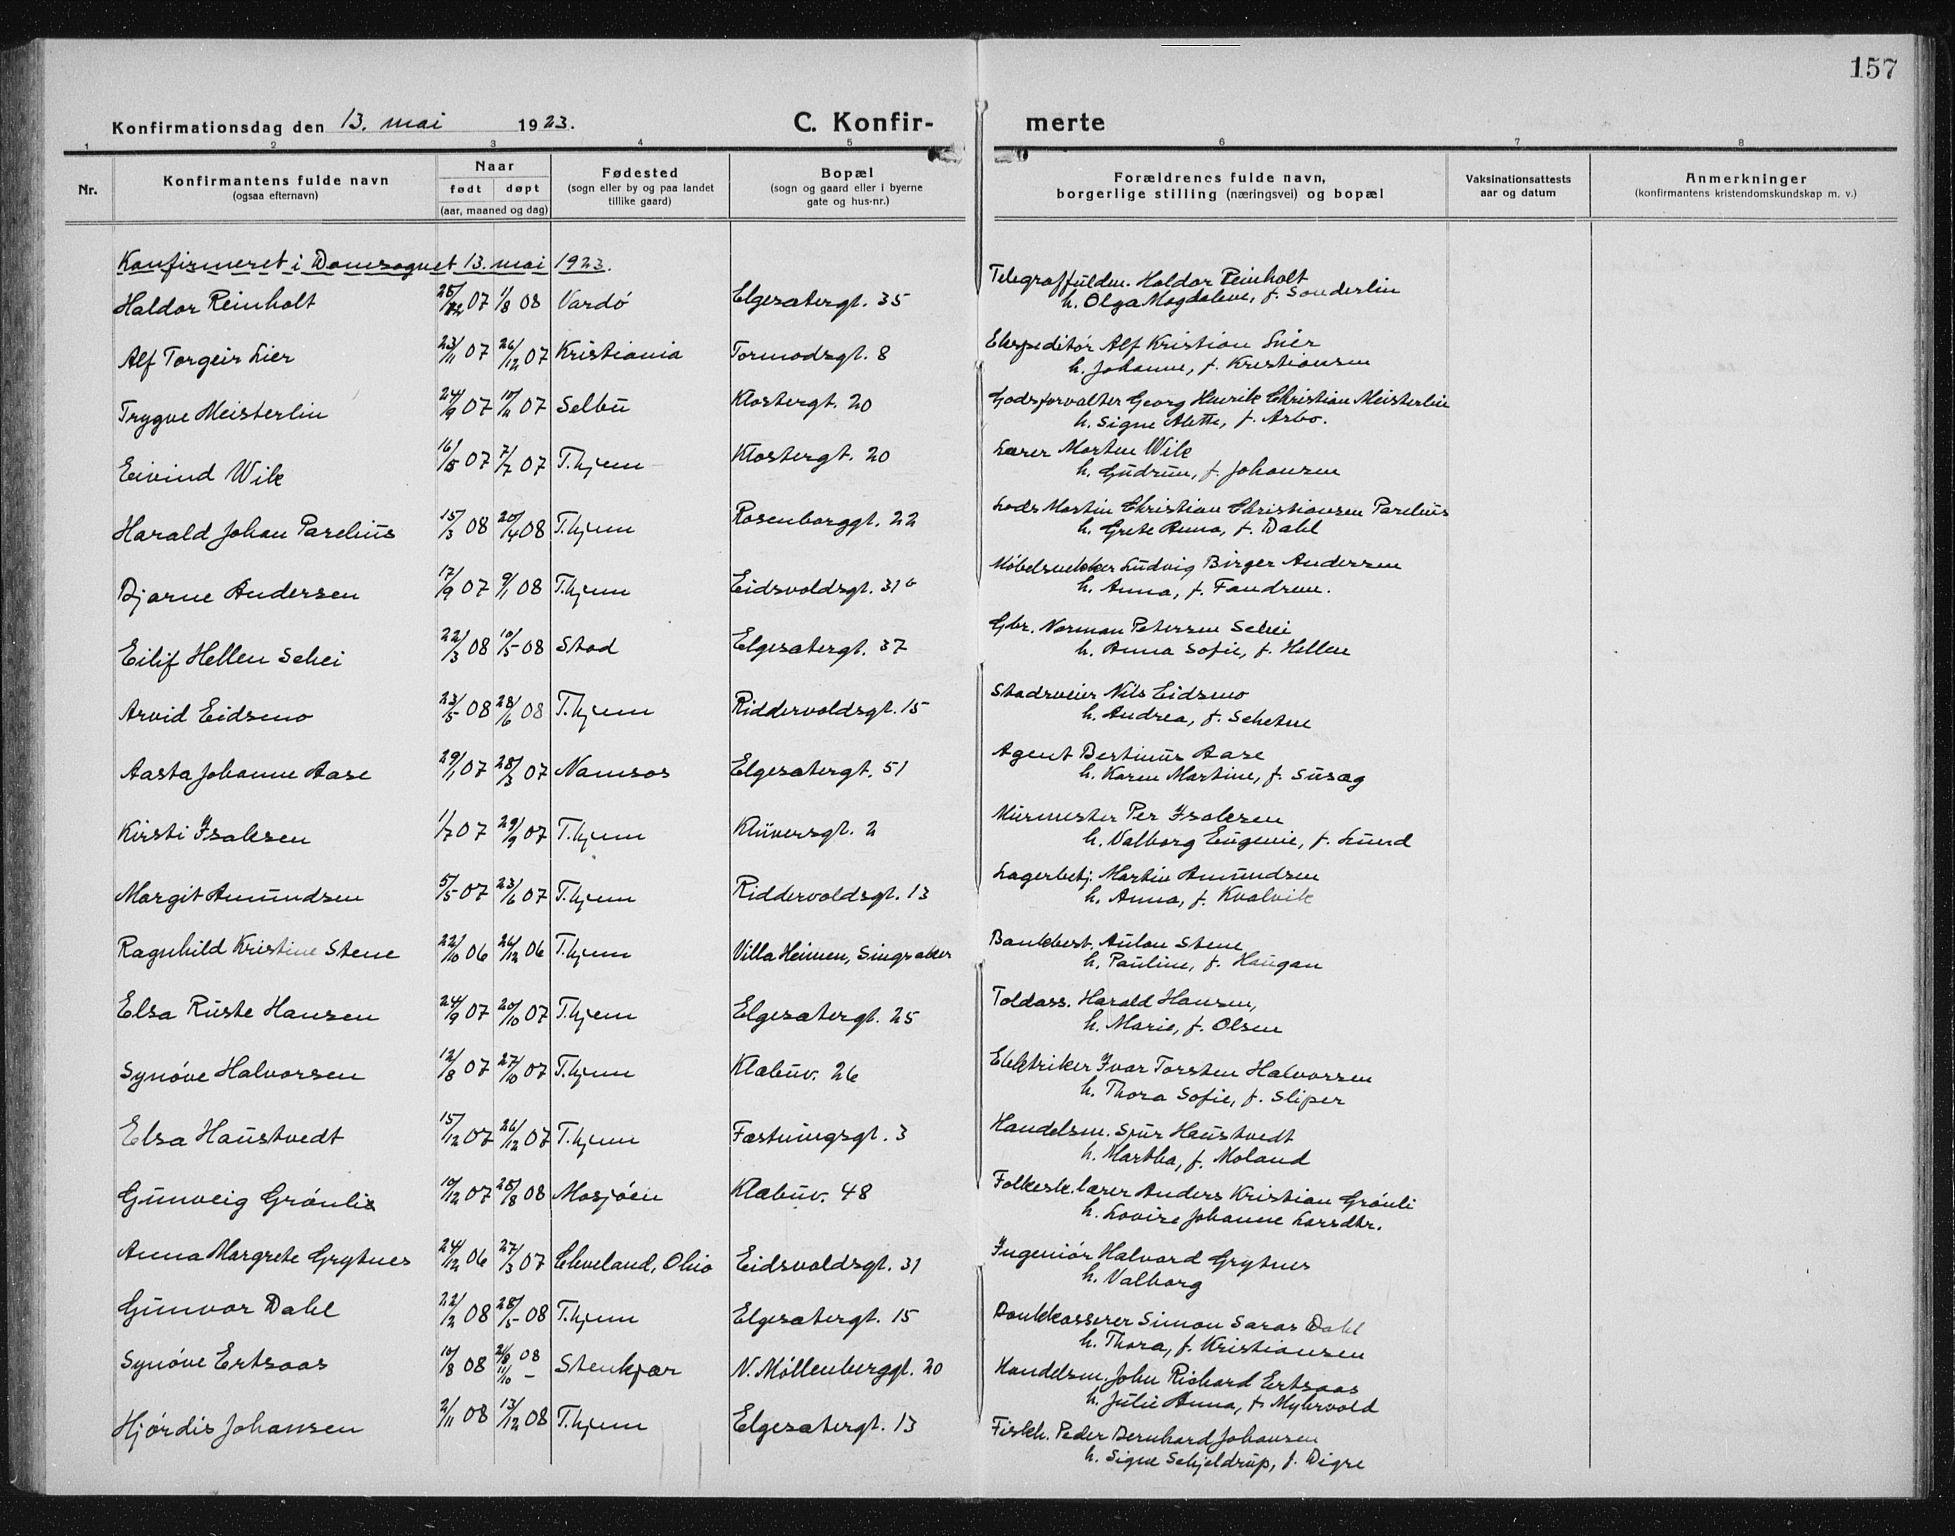 157
Konfirmationsdag den 13. mai 1923. C. Konfirmerte
1 2 3 4 5 6 7 8
Nr. Konfirmantens fulde navn (ogsaa efternavn) Naar født døpt (aar, maaned og dag) Fødested (sogn eller by og paa landet tillike gaard) Bopæl (sogn og gaard eller i byerne gate og hus-nr.) Forældrenes fulde navn, borgerlige stilling (næringsvei) og bopæl Vaksinationsattests aar og datum Anmerkninger (konfirmantens kristendomskundskap m. v.)
Konfirmeret i Domsognet 13. mai 1923.
Haldor Reinholt 25/12 07 1/8 08 Vardö Elgesætergt. 35 Telegraffuldm. Haldor Reinholt
h. Olga Magdalene, f. Sonderlin
Alf Torgeir Lier 23/11 07 26/12 07 Kristiania Tormodsgt. 8 Ekspeditör Alf Kristian Lier
h. Johanne, f. Kristiansen
Trygve Meisterlin 24/9 07 10/11 07 Selbu Klostergt. 20 Godsforvalter Georg Henrik Christian Meisterlin
h. Signe Alette, f. Arbo.
Eivind Wik 16/5 07 7/7 07 T.hjem Klostergt. 20 Lærer Morten Wik
h. Gudrun, f. Johansen
Harald Johan Parelius 15/3 08 20/4 08 T.hjem Rosenborggt. 22 Lods Martin Christian Christiansen Parelius
h. Grete Anna, f. Dahl
Bjarne Andersen 17/9 07 9/1 08 T.hjem Eidsvoldsgt. 31b Møbelsnekker Ludvig Birger Andersen
h. Anna, f. Fandrem.
Eilif Hellem Schei 22/3 08 10/5 08 Stod Elgesætergt. 37 Gbr. Norman Petersen Schei
h. Anna Sofie, f. Hellem
Arvid Eidsmo 23/5 08 28/6 08 T.hjem Riddervoldsgt. 15 Stadsveier Nils Eidsmo
h. Andrea, f. Schetne
Aasta Johanne Aase 29/1 07 28/3 07 Namsos Elgesætergt. 51 Agent Bertinus Aase
h. Karen Martine, f. Susæg
Kirsti Isaksen 1/7 07 29/9 07 T.hjem Klüversgt. 2 Murmester Per Isaksen
h. Valborg Eugenie, f. Lund
Margit Amundsen 5/5 07 23/6 07 T.hjem Riddervoldsgt. 13 Lagerbetj. Martin Amundsen
h. Anna, f. Kvalvik
Ragnhild Kristine Stene 22/10 06 26/12 06 T.hjem Villa Heimen, Singsaker Bankbest. Anton Stene
h. Pauline, f. Haugan
Elsa Ruste Hansen 24/9 07 20/10 07 T.hjem Elgesætergt. 25 Toldass. Harald Hansen,
h. Marie, f. Olsen
Synöve Halvorsen 12/8 07 27/10 07 T.hjem Klæbuv. 26 Elektriker Ivar Torsten Halvorsen
h. Thora Sofie, f. Sliper
Elsa Haustvedt 15/12 07 26/12 07 T.hjem Fæstningsgt. 3 Handelsm. Sjur Haustvedt
h. Martha, f. Moland
Gunveig Grönli 10/12 07 25/8 08 Mosjöen Klæbuv. 48 Folkesk.lærer Anders Kristian Grönli
h. Lovise Johanne Larsdtr.
Anna Margrete Grytnes 24/12 06 27/3 07 Cleveland, Ohio Eidsvoldsgt. 31 Ingeniör Halvard Grytnes
h. Valborg
Gunvor Dahl 22/2 08 28/5 08 T.hjem Elgesætergt. 15 Bankkasserer Simon Saras Dahl
h. Thora, f. Kristiansen
Synöve Ertsaas 10/8 08 21/8 08 11/10 – Stenkjær N. Möllenberggt. 20 Handelsm. John Richard Ertsaas
h. Julie Anna, f. Myhrvold
Hjördis Johansen 2/11 08 13/12 08 T.hjem Elgesætergt. 13 Fiskh. Peder Bernhard Johansen
h. Signe Schjeldrup, f. Digre